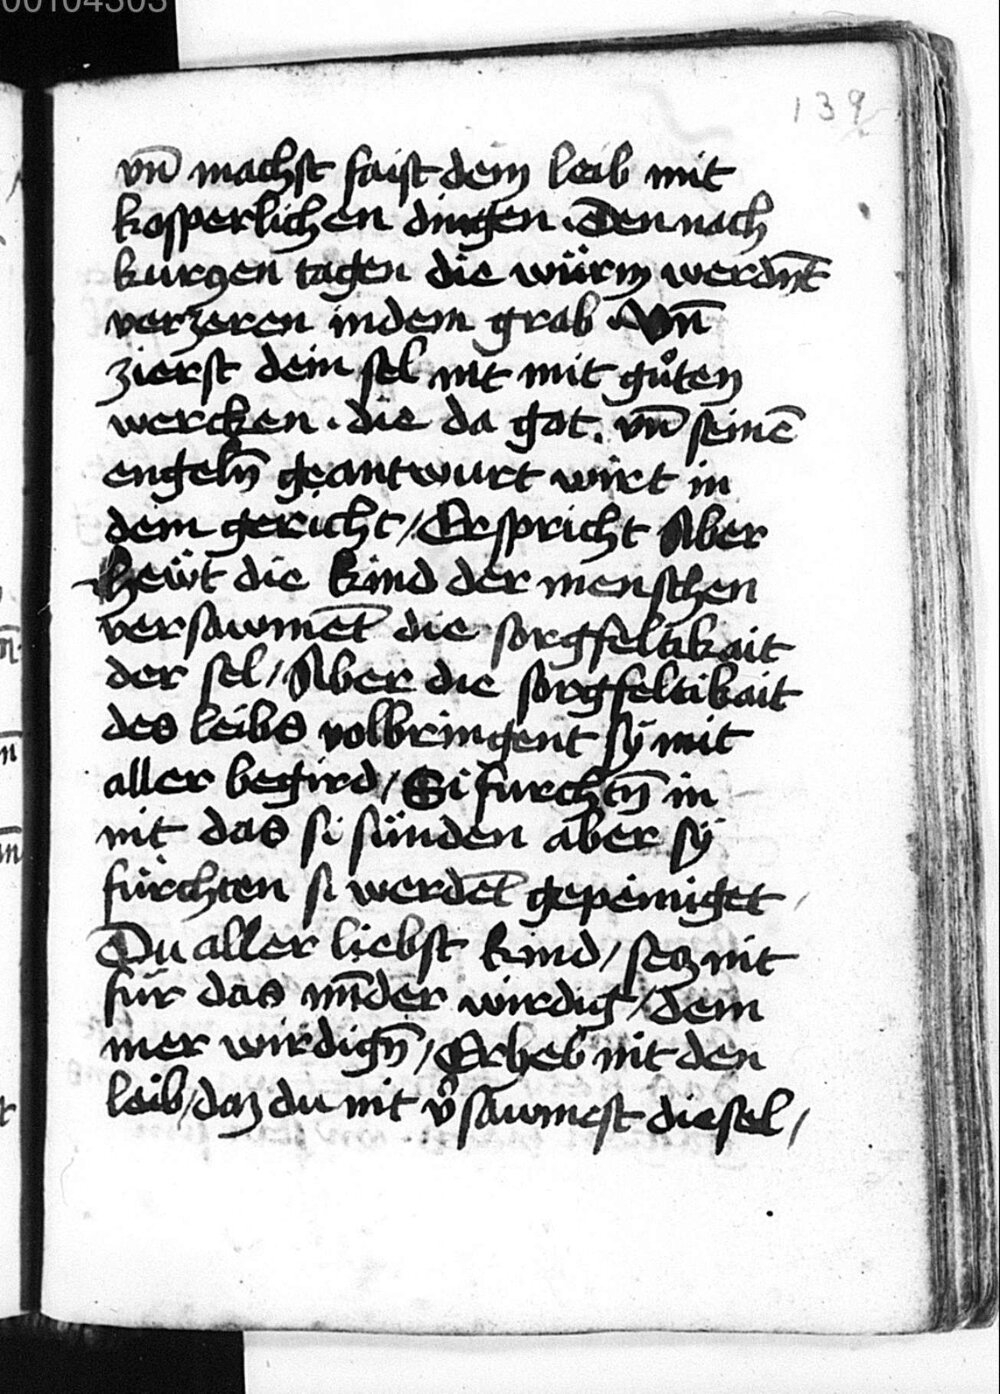 00104303
139
vn̄ machst faist dein leib mit
kosperlichen dingen . Den nach
kurczen tagen die würm werdn̄t
verzeren in dem grab . Vn̄
zierst dein sel nit mit gůten
wercken . die da got . vn̄ seinē
engeln̄ geantwurt wirt in
dem gericht / Er spricht Aber
hewt die kind der menschen
versawmēt die sorgfeltikait
der sel / Aber die sorgfeltikait
des leibs volbringent sÿ mit
aller begird / Si furchtn̄ in
nit das si sünden aber sÿ
fürchten si werdēt gepeiniget
Du aller liebst kind / secz nit
für das mīder wirdig / dem
mer wirdign̄ / Erheb nit den
leib / daz du nit v̾sawmest die sel /